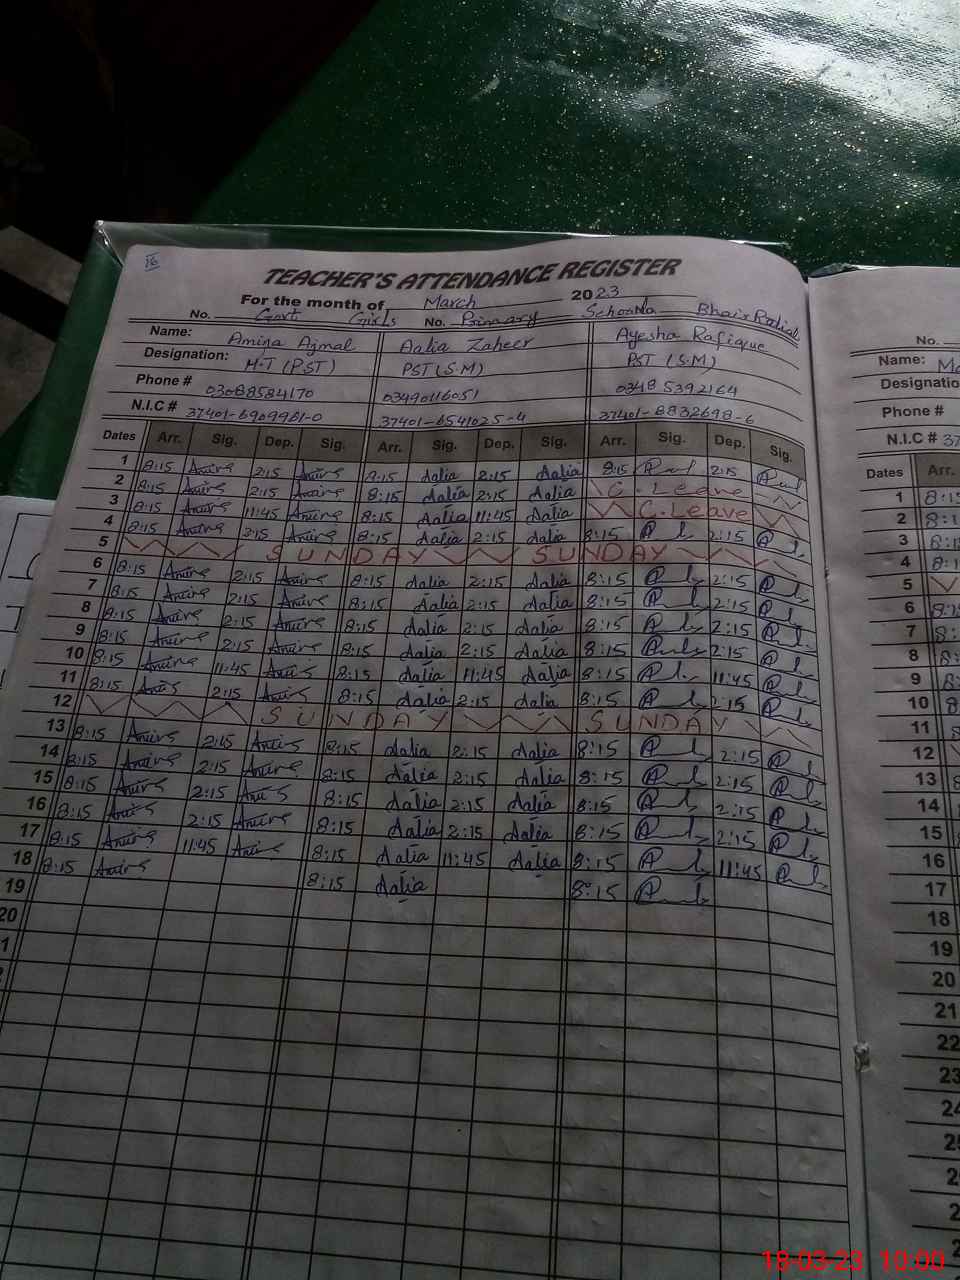 16
TEACHER'S ATTENDANCE REGISTER
For the month of March 2023
No. Govt Girls No. Primary School No.
Name: Amina Ajmal Aalia Zaheer Ayesha Rafique
Designation: H.T (PST) PST (S.M) PST (S.M)
Phone # 03088584170 03490116051 03485392164
N.I.C # 37401-6909961-0 37401-6541025-4 37401-8832698-6
Dates Arr. Sig. Dep. Sig. Arr. Sig. Dep. Sig. Arr. Sig. Dep. Sig.
1 8:15 2:15 8:15 Aalia 2:15 Aalia 8:15 2:15
2 8:15 2:15 8:15 Aalia 2:15 Aalia C. Leave
3 8:15 11:45 8:15 Aalia 11:45 Aalia C. Leave
4 8:15 8:15 Aalia 2:15 Aalia 8:15 2:15
5 SUNDAY SUNDAY
6 8:15 2:15 8:15 Aalia 2:15 Aalia 8:15 2:15
7 8:15 2:15 8:15 Aalia 2:15 Aalia 8:15 2:15
8 8:15 2:15 8:15 Aalia 2:15 Aalia 8:15 2:15
9 8:15 2:15 8:15 Aalia 2:15 Aalia 8:15 2:15
10 8:15 11:45 8:15 Aalia 11:45 Aalia 8:15 11:45
11 8:15 2:15 8:15 Aalia 2:15 Aalia 8:15 2:15
12 SUNDAY SUNDAY
13 8:15 2:15 8:15 Aalia 2:15 Aalia 8:15 2:15
14 8:15 2:15 8:15 Aalia 2:15 Aalia 8:15 2:15
15 8:15 2:15 8:15 Aalia 2:15 Aalia 8:15 2:15
16 8:15 2:15 8:15 Aalia 2:15 Aalia 8:15 2:15
17 8:15 11:45 8:15 Aalia 11:45 Aalia 8:15 11:45
18 8:15 8:15 Aalia 8:15
19
20
No.
Name:
Designatio
Phone #
N.I.C # 37
Dates Arr.
1 8:15
2
3
4
5
6
7
8
9
10
11
12
13
14
15
16
17
18
19
20
21
22
23
24
25
18-03-23 10:00